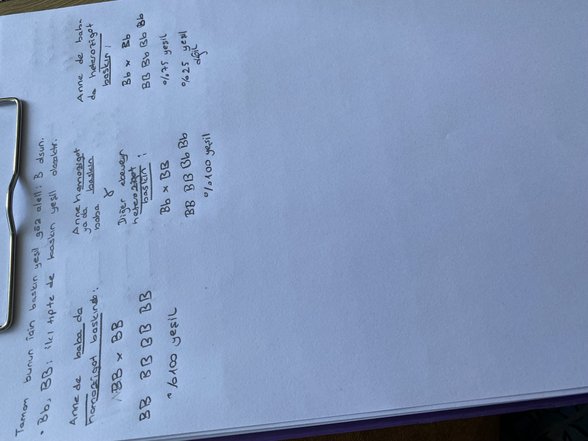 Tamam bunun için baskın yeşil göz aleli: B olsun.
• Bb, BB: iki tipte de baskın yeşil olacaktır.
Anne de baba da
homozigot baskınsa:
BB x BB
BB BB BB BB
%100 yeşil
Anne homozigot
ya da baskın
baba
Diğer ebeveyn
heterozigot
baskın:
Bb x BB
BB BB Bb Bb
%100 yeşil
Anne de baba
da heterozigot
baskın:
Bb x Bb
BB Bb Bb bb
%75 yeşil
%25 yeşil
değil